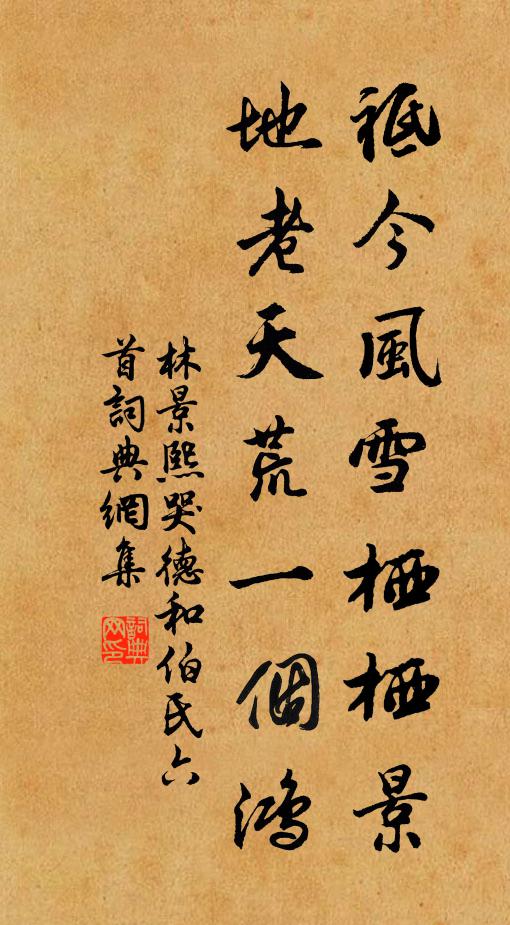 祗今風雪栖栖景
地老天荒一個鴻
林景熙哭德和伯氏六
首詞典網集
詞典
网印